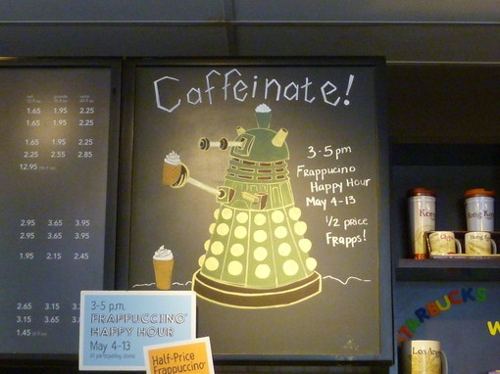 Caffeinate!
3-5 pm
Frappucino
Happy Hour
May 4-13
1/2 price
Frapps!
1.65 1.95 2.25
1.65 1.95 2.25
1.65 1.95 2.25
2.25 2.55 2.85
12.95
2.95 3.65 3.95
2.95 3.65 3.95
1.95 2.15 2.45
2.65 3.15
3.15 3.65
1.45
3-5 p.m.
FRAPPUCCINO®
HAPPY HOUR
May 4-13
At participating stores
Half-Price
Frappuccino®
STARBUCKS
W